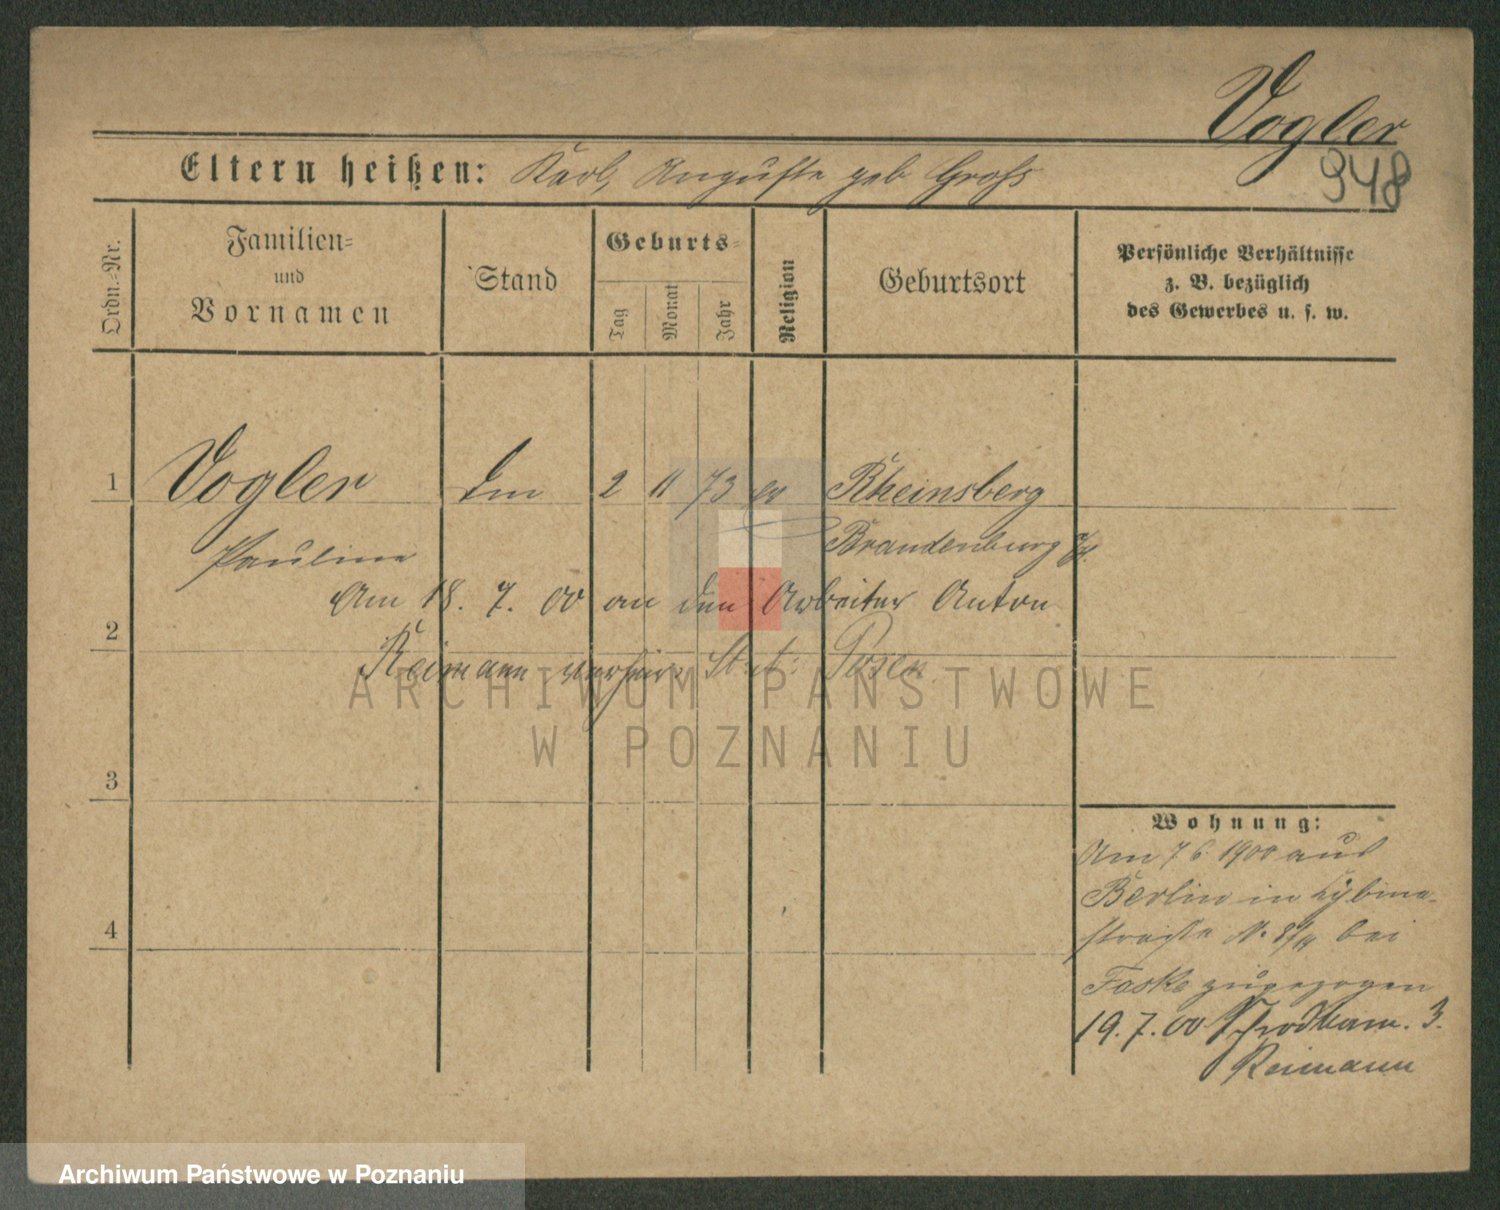 Vogler
948
Eltern heißen: Karl, Auguste geb Groß
Ordn.-Nr.
Familien-
und
Vornamen
Stand
Geburts-
Tag
Monat
Jahr
Religion
Geburtsort
Persönliche Verhältnisse
z. B. bezüglich
des Gewerbes u. s. w.
1 Vogler 2 11 73 ev Rheinsberg
Pauline Brandenburg
Am 18. 7. 00 an den Arbeiter Anton
2
Reimann verheir. Posen
ARCHIWUM PAŃSTWOWE
W POZNANIU
3
4
Wohnung:
Am 7 6. 1900 aus
Berlin in Cybina-
straße N. bei
Faske zugezogen
19. 7. 00 3.
Reimann
Archiwum Państwowe w Poznaniu